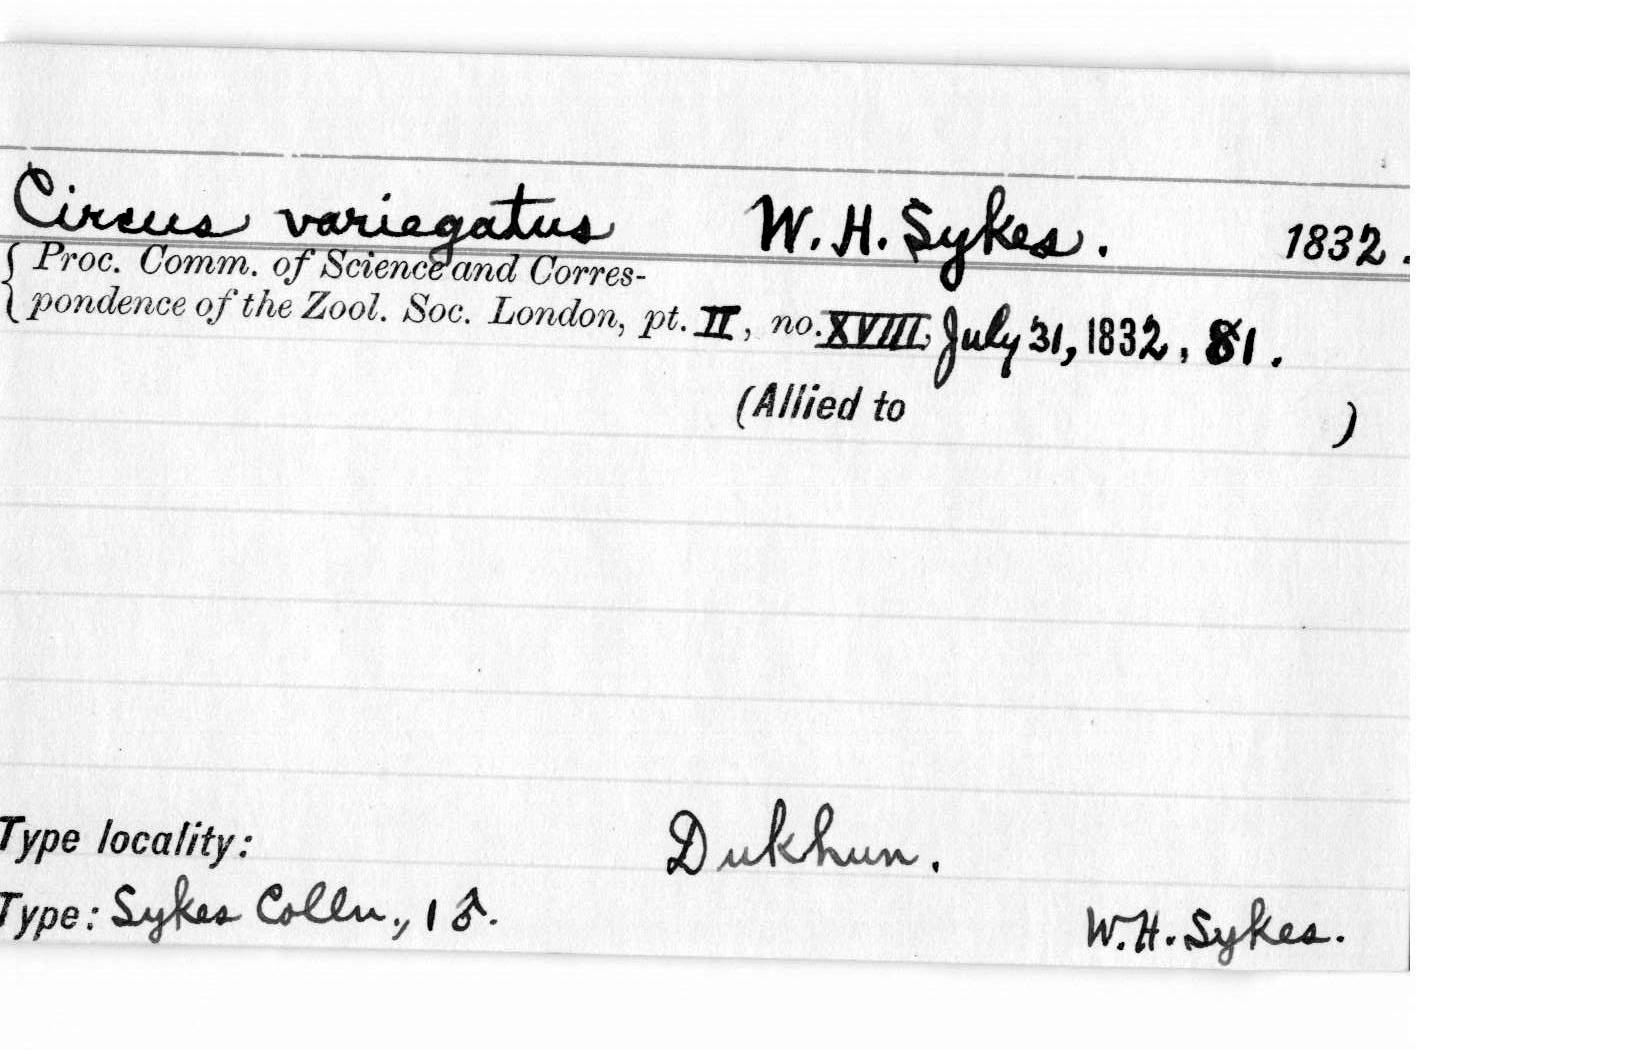 Circus variegatus W. H. Sykes. 1832.
{ Proc. Comm. of Science and Corres-
pondence of the Zool. Soc. London, pt. II, no. XVIII, July 31, 1832, 81.
(Allied to )
Type locality: Dukhun.
Type: Sykes Colln., 1 ♂. W. H. Sykes.